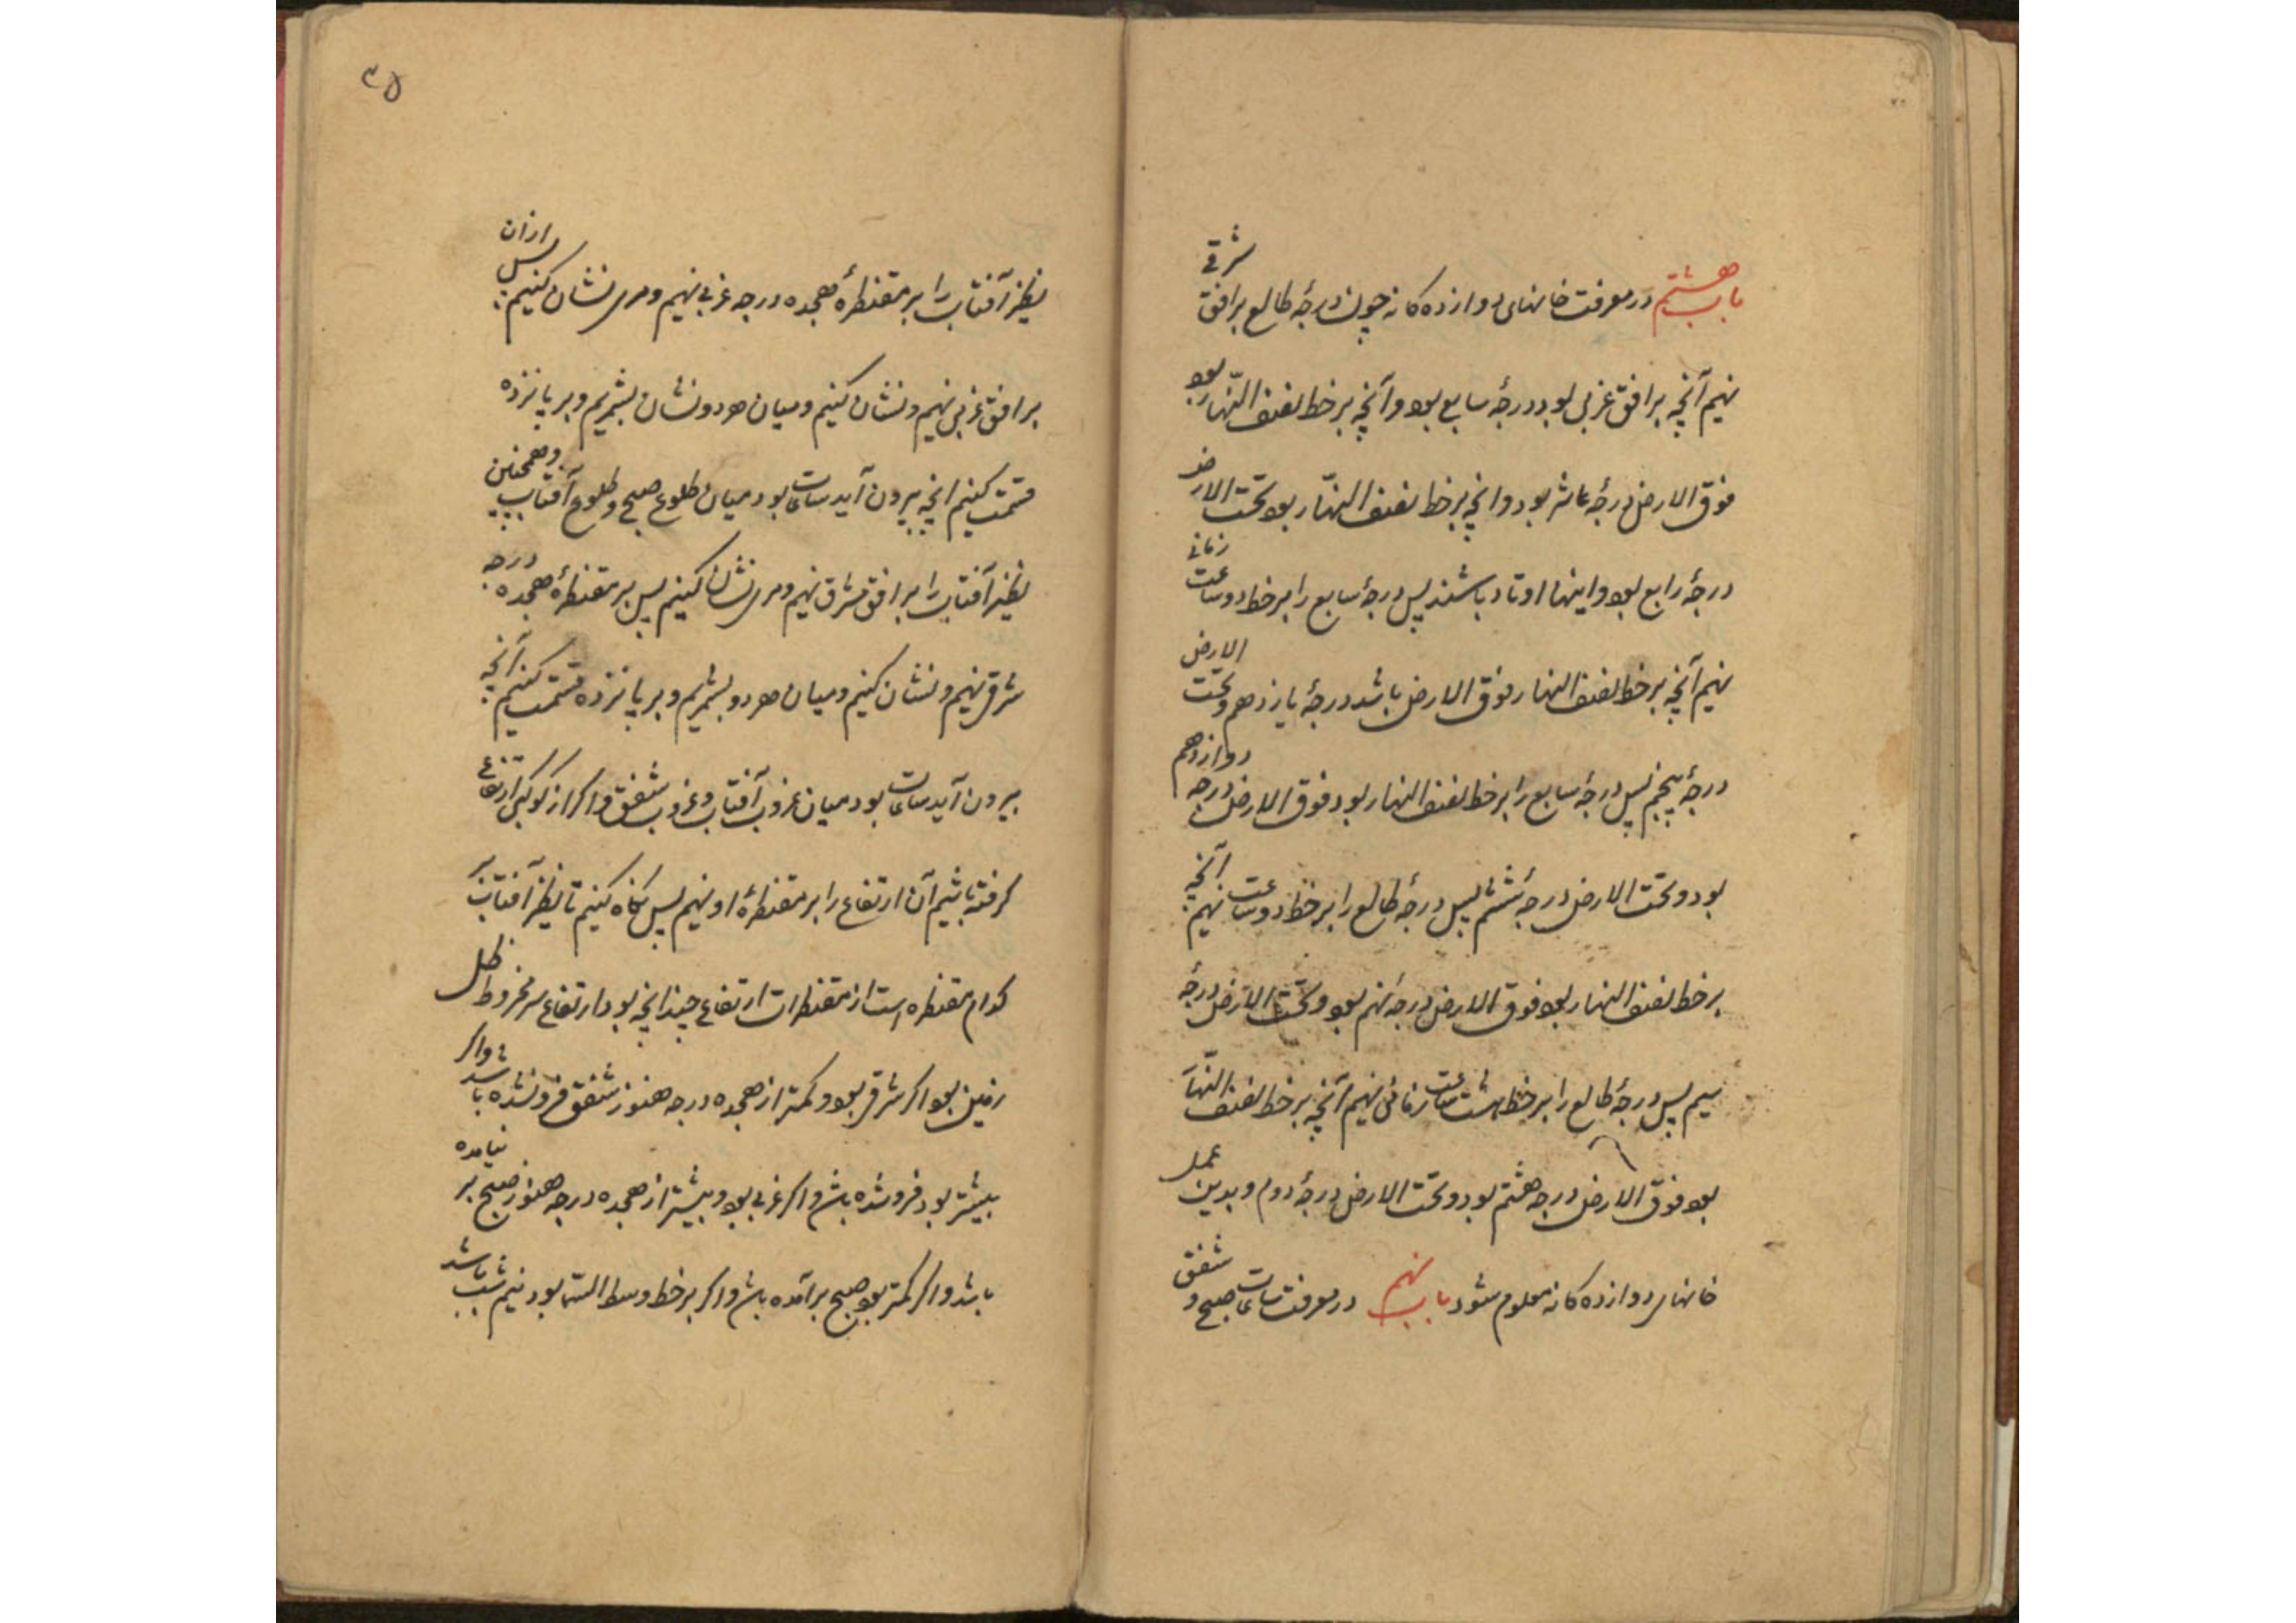 باب هشتم در معرفت خانهای دوازده کانه چون درجهٔ طالع بر افق شرقی
نهیم آنچه بر افق غربی بود درجهٔ سابع بود و آنچه بر خط نصف النّهار بود
فوق الارض درجهٔ عاشر بود و انچه بر خط نصف النهّار بود تحت الارض
درجهٔ رابع بود و اینها اوتاد باشند پس درجهٔ سابع را بر خط دو ساعت زمانی
نهیم آنچه بر خط نصف النهار فوق الارض باشد درجهٔ یازدهم و تحت الارض
درجهٔ پنجم پس درجهٔ سابع را بر خط نصف النهار بود فوق الارض درجه دوازدهم
بود و تحت الارض درجهٔ ششم پس درجهٔ طالع را بر خط دو ساعت نهیم آنچه
بر خط نصف النهار بود فوق الارض درجهٔ نهم بود و تحت الارض درجهٔ
سیم پس درجهٔ طالع را بر خط ساعت زمانی نهیم آنچه بر خط نصف النهّار
بود فوق الارض درجه هشتم بود و تحت الارض درجهٔ دوم و بدین عمل
خانهای دوازده کانه معلوم شود باب نهم در معرفت ساعات صبح و شفق
۳۵
نظیر آفتاب را بر مقنطرهٔ هجده درجه غربی نهیم و مری نشان کنیم پس از ان
بر افق غربی نهیم و نشان کنیم و میان هر دو نشان بشمریم و بر پانزده
قسمت کنیم انچه بیرون آید ساعات بود میان طلوع صبح و طلوع آفتاب و همچنین
نظیر آفتاب را بر افق مشرق نهیم و مری نشان کنیم پس بر مقنطرهٔ هجده درجه
شرقی نهیم و نشان کنیم و میان هر دو بشمریم و بر پانزده قسمت کنیم آنچه
بیرون آید ساعات بود میان غروب آفتاب و غروب شفق و اکر از کوکبی ارتفاع
کرفته باشیم آن ارتفاع را بر مقنطرهٔ او نهیم پس نکاه کنیم تا نظیر آفتاب بر
کدام مقنطره است از مقنطرات ارتفاع چندانچه بود ارتفاع سر مخروط ظل
زمین بود اکر شرقی بود و کمتر از هجده درجه هنوز شفق فرو نشده باشد و اکر
بیشتر بود فرو شده باشد و اکر غربی بود و بیشتر از هجده درجه هنوز صبح بر نیامده
باشد و اکر کمتر بود صبح برآمده باشد و اکر بر خط وسط السّما بود نیم شب باشد